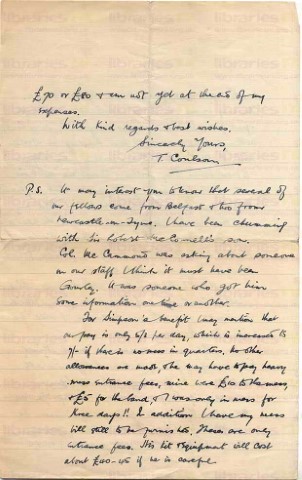 £70 or £80 & am not yet at the end of my
expenses.
With kind regards & best wishes.
Sincerely Yours,
T. Coulson
P.S. It may interest you to know that several of
our fellows come from Belfast & two from
Newcastle-on-Tyne. I have been chumming
with Sir Robert McConnell's son.
Col. McCammond was asking about someone
on our staff I think it must have been
Gourley. It was someone who got him
some information one time or another.
For Simpson's benefit I may mention that
our pay is only 6/- per day, which is increased to
7/- if there is no mess in quarters. No other
allowances are made. We may have to pay heavy
mess entrance fees, mine was £10 to the mess,
& £5 for the band, & I was only in mess for
three days!! In addition I have my mess
bill still to be furnished. These are only
entrance fees. His kit & equipment will cost
about £40-45 if he is careful
libraries